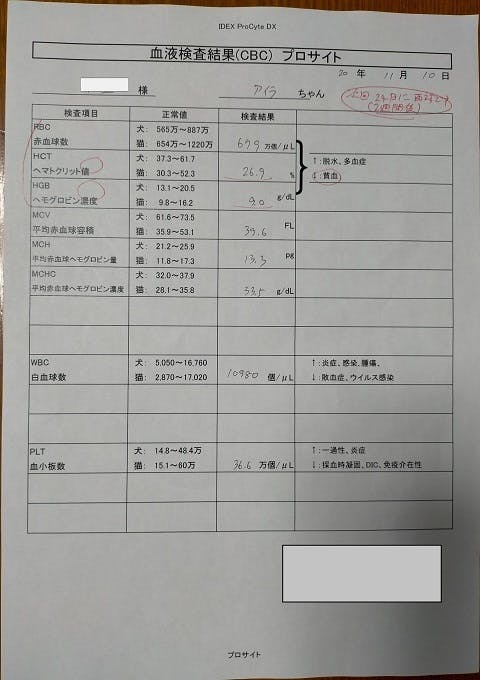 IDEX ProCyte DX
血液検査結果(CBC) プロサイト
20 年 11 月 10 日
様 アイラ ちゃん
次回 24日に
(2週間後)
検査項目 正常値 検査結果
RBC 犬: 565万~887万
赤血球数 猫: 654万~1220万 679 万個/μL
HCT 犬: 37.3~61.7 ↑:脱水、多血症
ヘマトクリット値 猫: 30.3~52.3 26.9 % ↓:貧血
HGB 犬: 13.1~20.5
ヘモグロビン濃度 猫: 9.8~16.2 9.0 g/dL
MCV 犬: 61.6~73.5
平均赤血球容積 猫: 35.9~53.1 39.6 FL
MCH 犬: 21.2~25.9
平均赤血球ヘモグロビン量 猫: 11.8~17.3 13.3 pg
MCHC 犬: 32.0~37.9
平均赤血球ヘモグロビン濃度 猫: 28.1~35.8 33.5 g/dL
WBC 犬: 5,050~16,760 ↑:炎症、感染、腫瘍、
白血球数 猫: 2,870~17,020 10980 個/μL ↓:敗血症、ウイルス感染
PLT 犬: 14.8~48.4万 ↑:一過性、炎症
血小板数 猫: 15.1~60万 36.6 万個/μL ↓:採血時凝固、DIC、免疫介在性
プロサイト